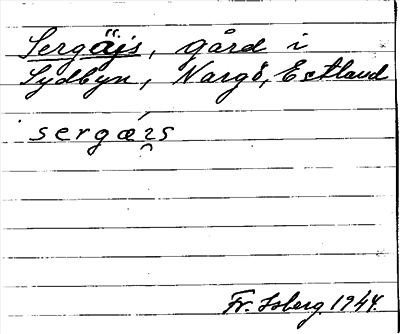 Sergäjs, gård i
Sydbyn, Nargö, Estland
sergǽi̯s
Fr. Isberg 1944.